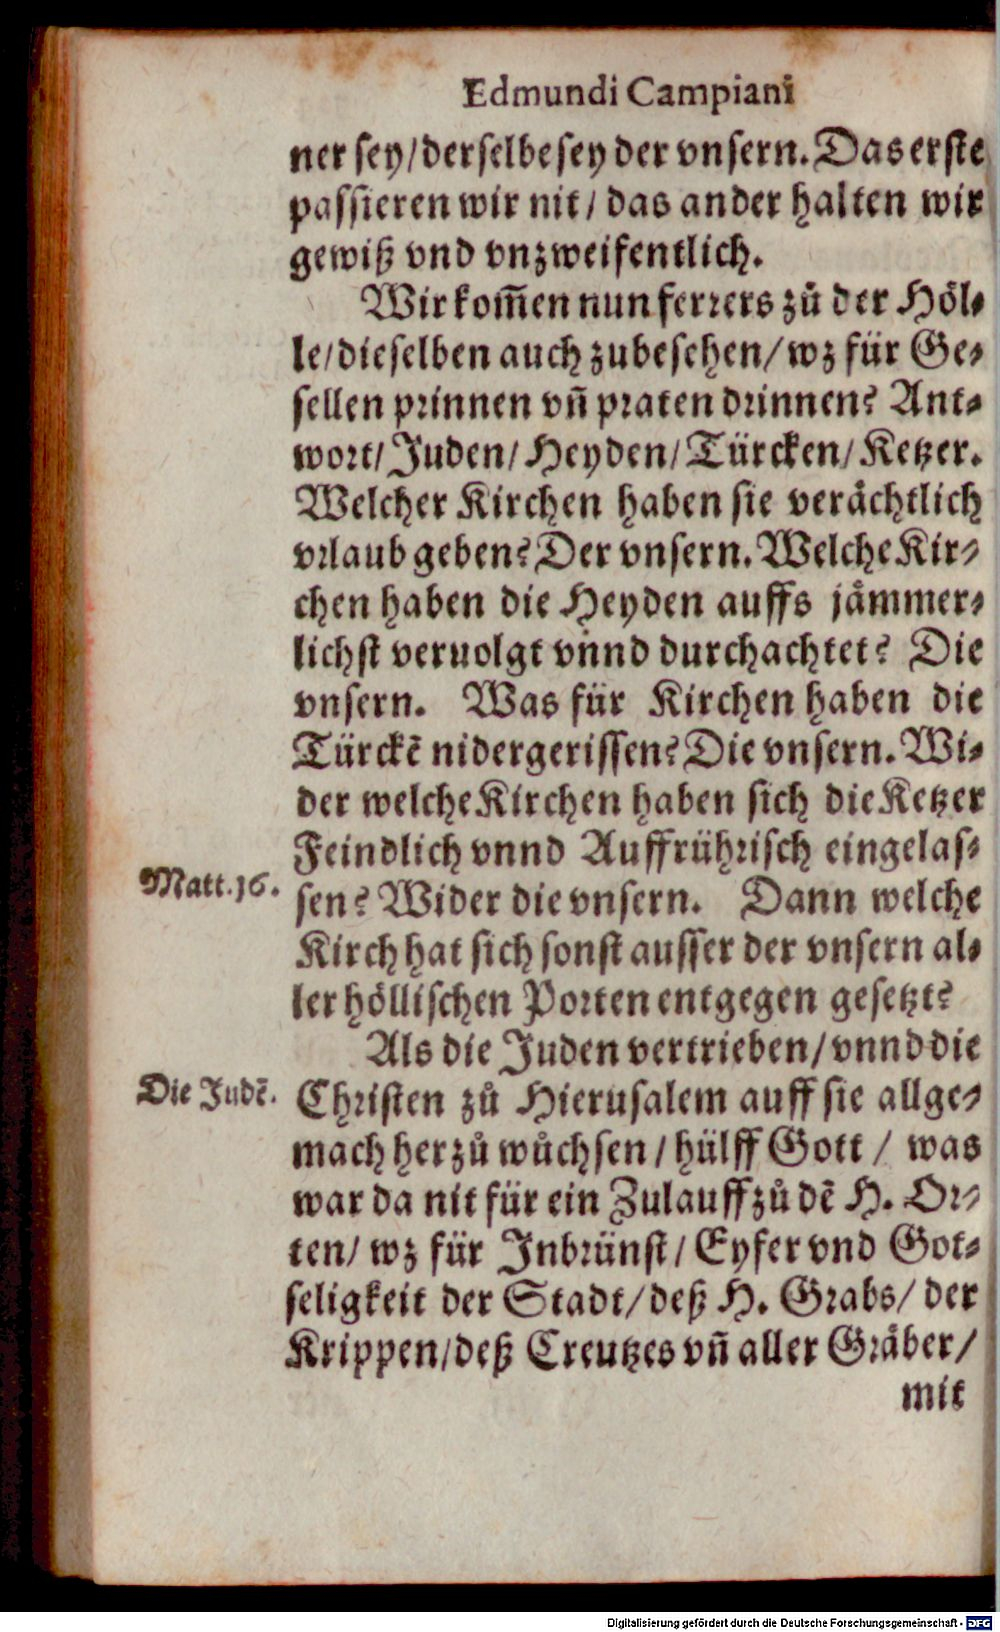 Edmundi Campiani
ner sey/derselbe sey der vnsern. Das erste
passieren wir nit/ das ander halten wir
gewiß vnd vnzweifentlich.
Wir kom̃en nun ferrers zů der Höl⸗
le/dieselben auch zubesehen/ wz für Ge⸗
sellen prinnen vñ praten drinnen? Ant⸗
wort/ Juden/ Heyden/ Türcken/ Ketzer.
Welcher Kirchen haben sie verächtlich
vrlaub geben? Der vnsern. Welche Kir⸗
chen haben die Heyden auffs jämmer⸗
lichst veruolgt vnnd durchachtet? Die
vnsern. Was für Kirchen haben die
Türckẽ nidergerissen? Die vnsern. Wi⸗
der welche Kirchen haben sich die Ketzer
Feindlich vnnd Auffrührisch eingelas⸗
Matt.16.
sen? Wider die vnsern. Dann welche
Kirch hat sich sonst ausser der vnsern al⸗
ler höllischen Porten entgegen gesetzt?
Als die Juden vertrieben/ vnnd die
Die Judẽ.
Christen zů Hierusalem auff sie allge⸗
mach herzů wůchsen/ hülff Gott/ was
war da nit für ein Zulauff zů dẽ H. Or⸗
ten/ wz für Inbrünst/ Eyfer vnd Got⸗
seligkeit der Stadt/ deß H. Grabs/ der
Krippen/deß Creutzes vñ aller Gräber/
mit
Digitalisierung gefördert durch die Deutsche Forschungsgemeinschaft - DFG